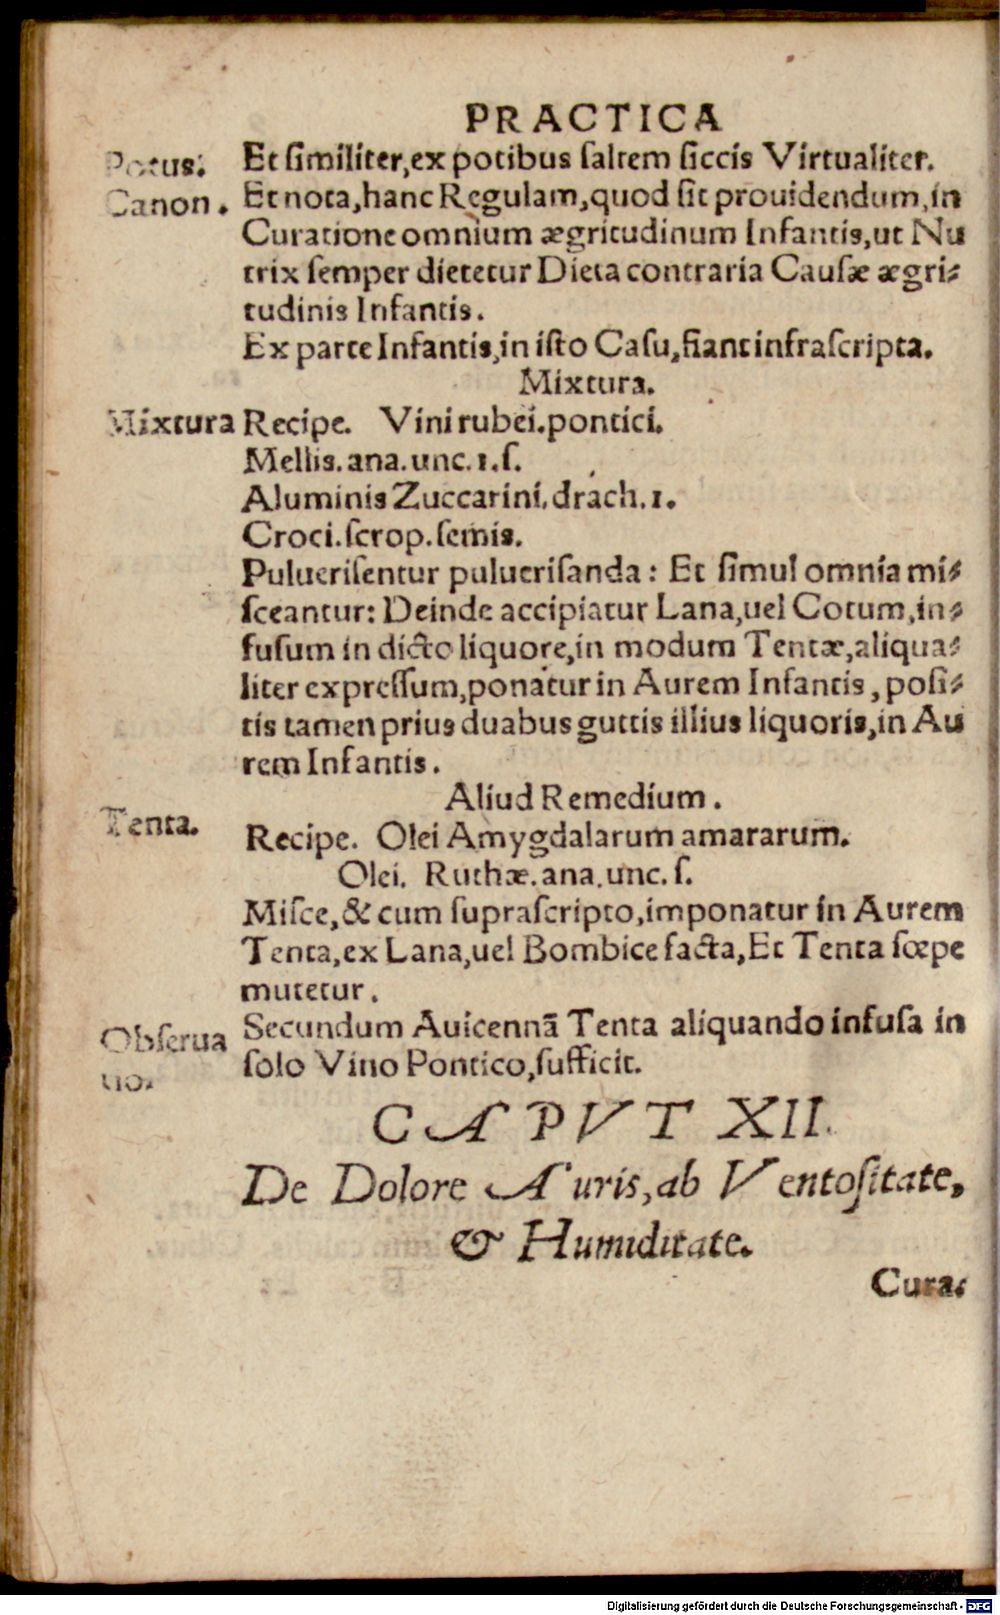 PRACTICA
Potus. Et ſimiliter, ex potibus ſaltem ſiccis Virtualiter.
Canon. Et nota, hanc Regulam, quod ſit prouidendum, in
Curatione omnium ægritudinum Infantis, ut Nu
trix ſemper dietetur Dieta contraria Cauſæ ægri⸗
tudinis Infantis.
Ex parte Infantis, in iſto Caſu, fiant infraſcripta.
Mixtura.
Mixtura Recipe. Vini rubei. pontici.
Mellis. ana. unc. 1. ſ.
Aluminis Zuccarini. drach. 1.
Croci. ſcrop. ſemis.
Pulueriſentur pulueriſanda: Et ſimul omnia mi⸗
ſceantur: Deinde accipiatur Lana, uel Cotum, in⸗
fuſum in dicto liquore, in modum Tentæ, aliqua⸗
liter expreſſum, ponatur in Aurem Infantis, poſi⸗
tis tamen prius duabus guttis illius liquoris, in Au
rem Infantis.
Aliud Remedium.
Tenta.
Recipe. Olei Amygdalarum amararum.
Olei. Ruthæ. ana. unc. ſ.
Miſce, & cum ſupraſcripto, imponatur in Aurem
Tenta, ex Lana, uel Bombice facta, Et Tenta ſœpe
mutetur.
Obſerua Secundum Auicennã Tenta aliquando infuſa in
tio. ſolo Vino Pontico, ſufficit.
CAPVT XII.
De Dolore Auris, ab Ventoſitate,
& Humiditate.
Cura⸗
Digitalisierung gefördert durch die Deutsche Forschungsgemeinschaft - DFG